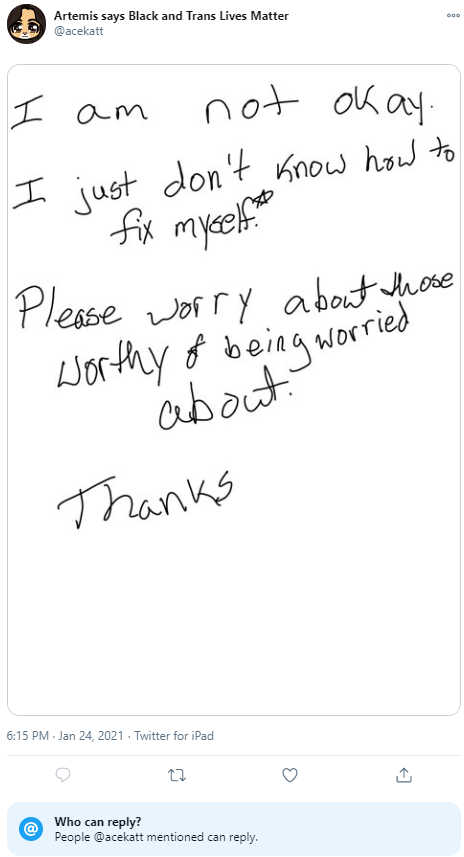 Artemis says Black and Trans Lives Matter
@acekatt
I am not okay.
I just don't know how to
fix myself.*
Please worry about those
worthy of being worried
about.
Thanks
6:15 PM · Jan 24, 2021 · Twitter for iPad
Who can reply?
People @acekatt mentioned can reply.